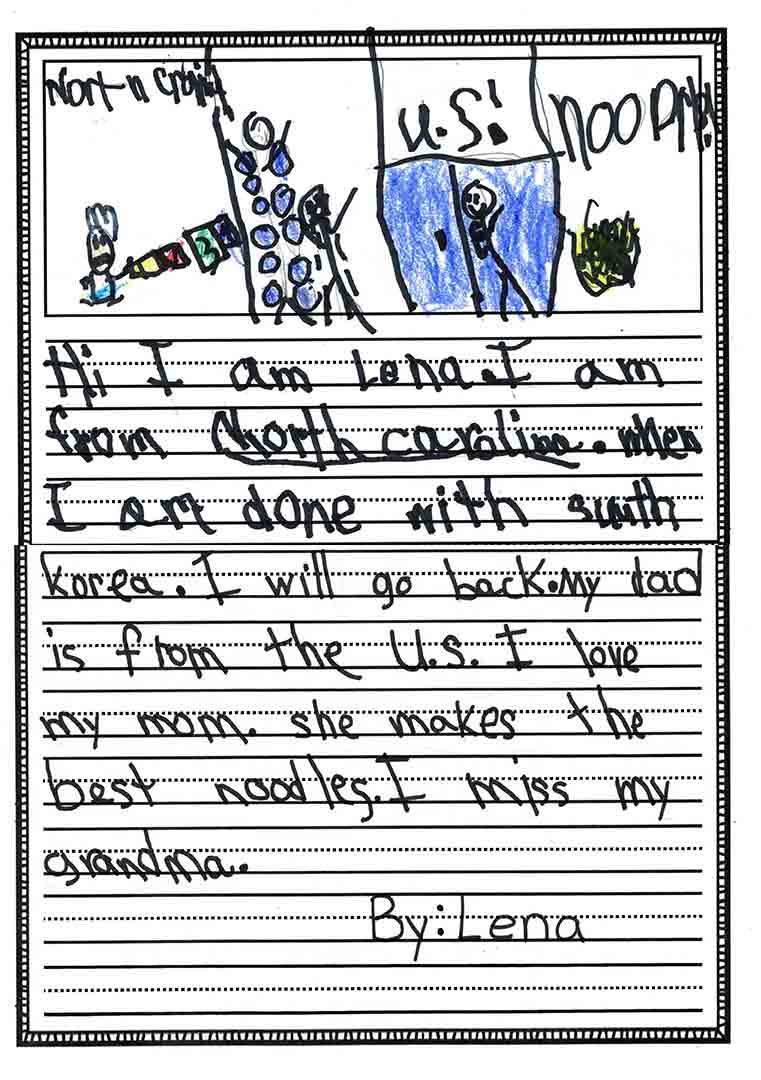 U.S!
Hi I am Lena. I am
from North carolina. when
I am done with suuth
korea. I will go back. My dad
is from the U.S. I love
my mom. she makes the
best noodles. I miss my
grandma.
By: Lena